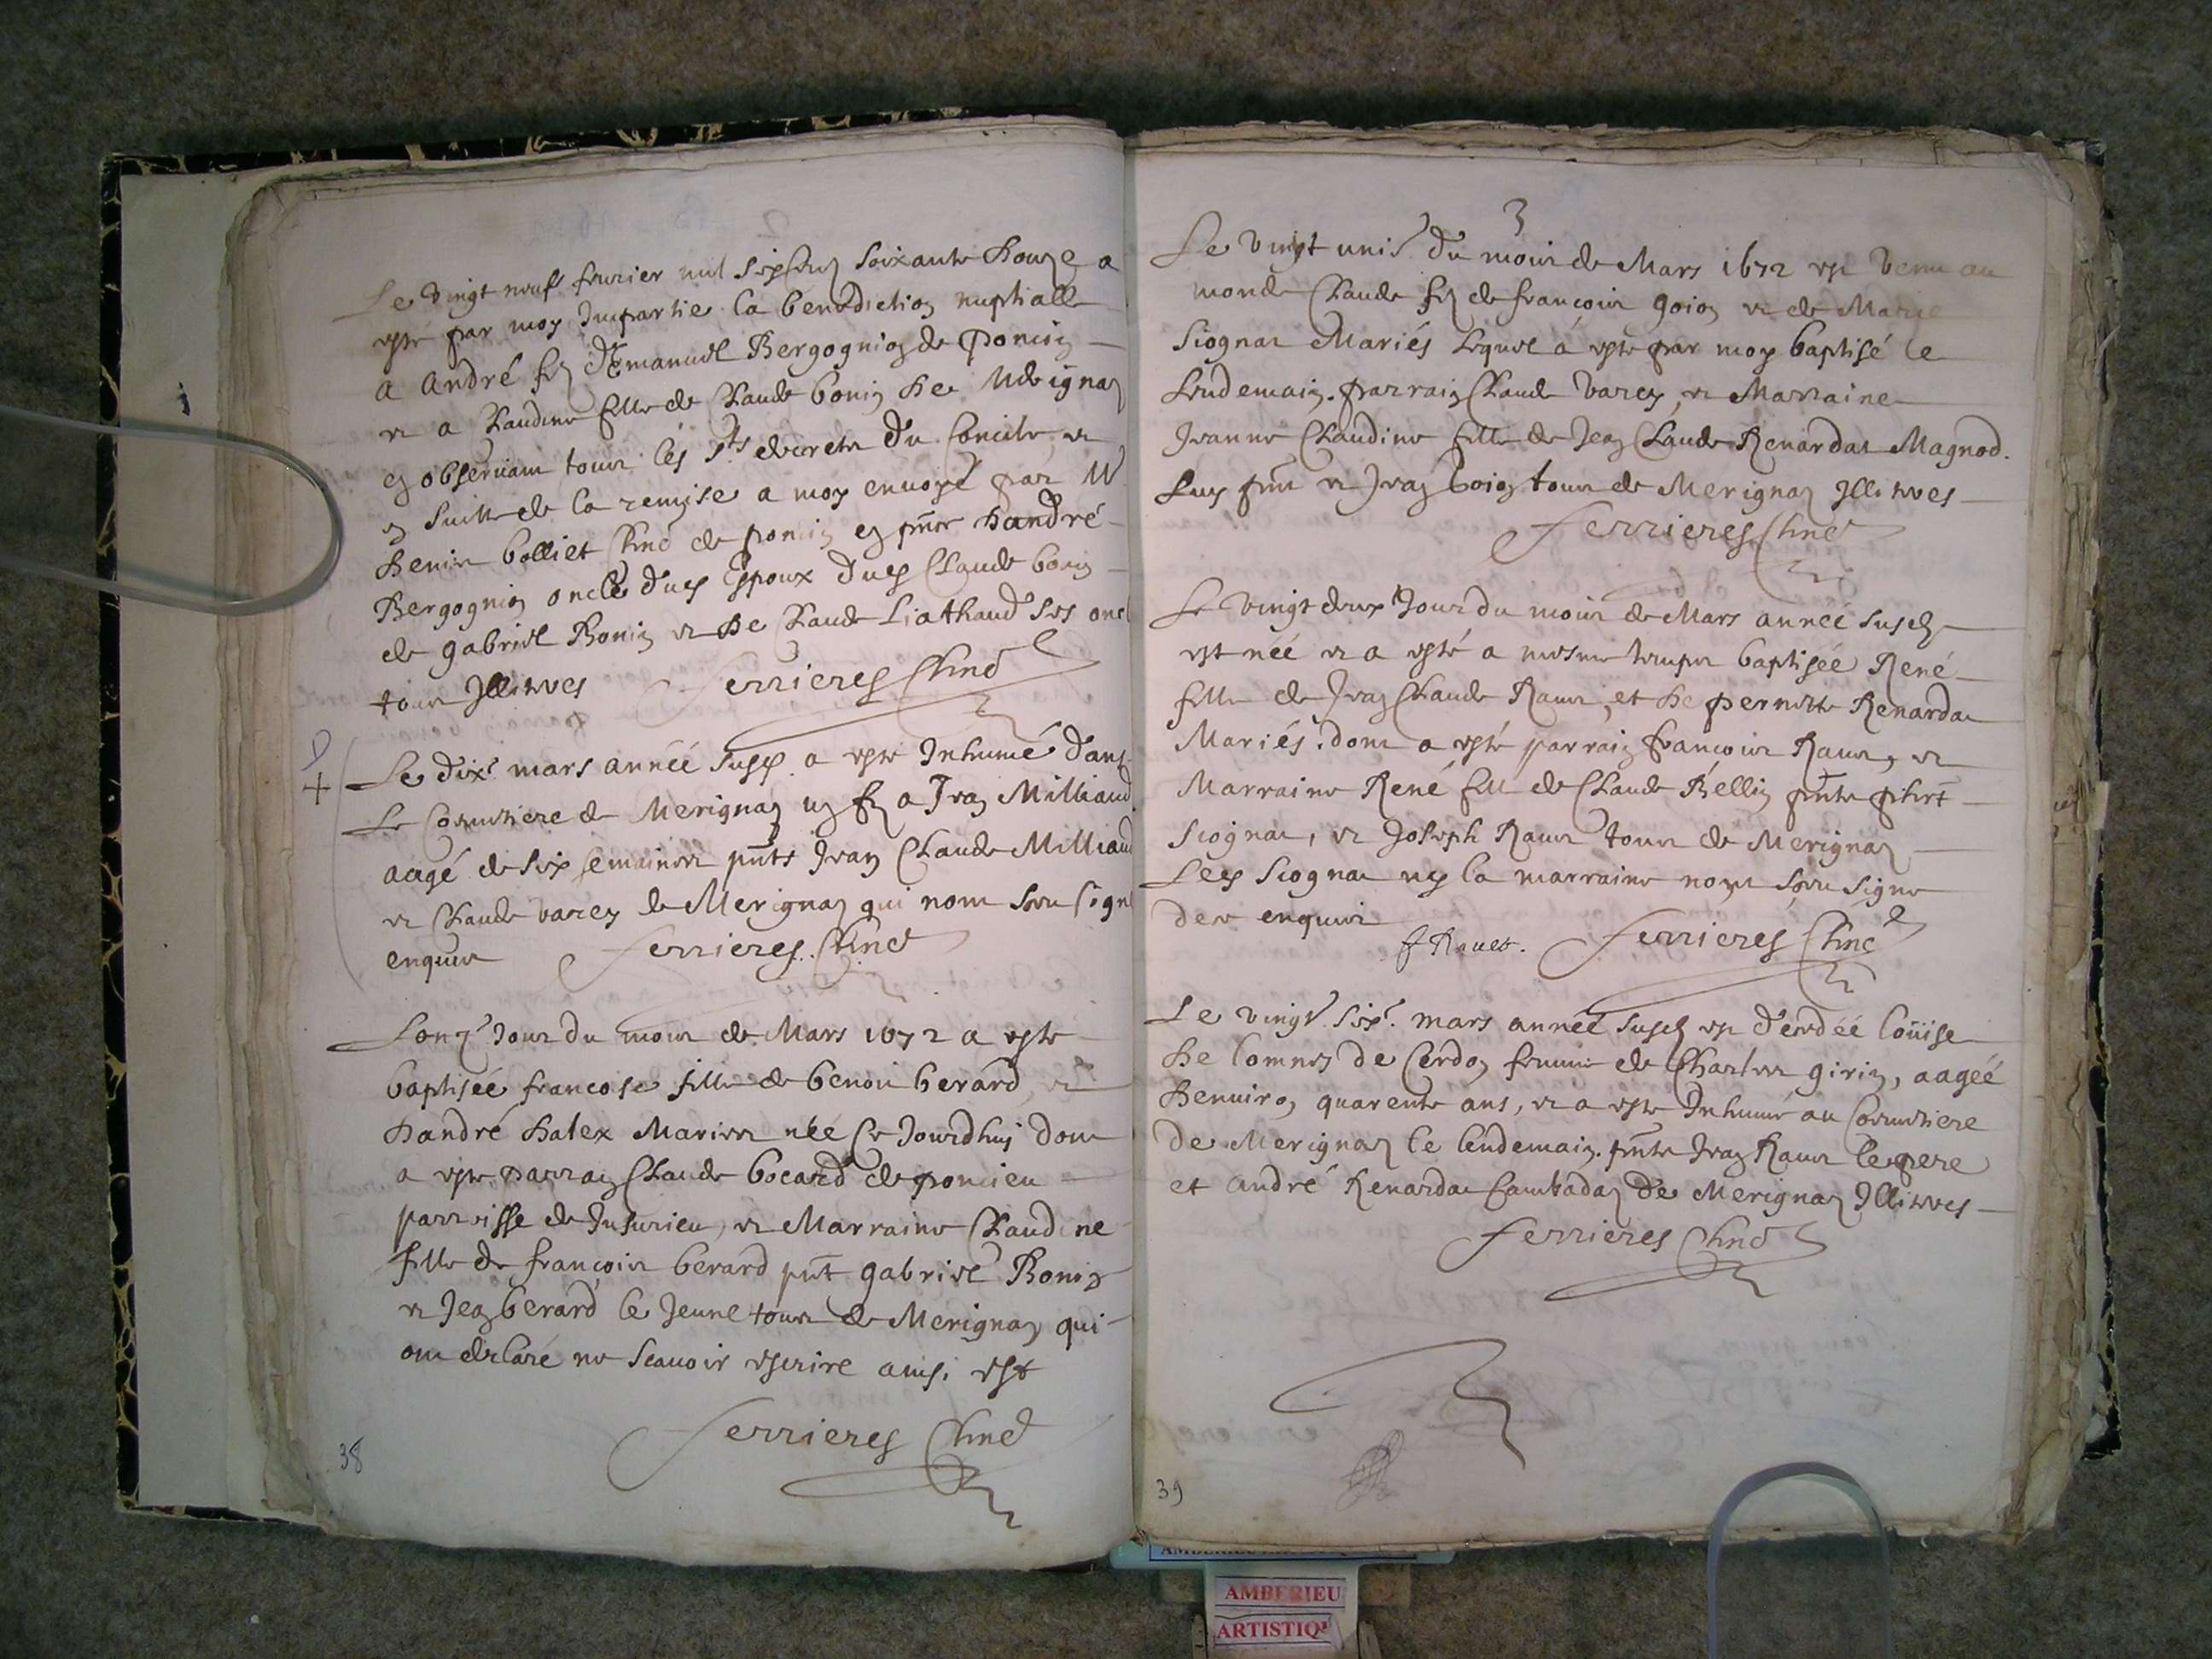 Le vingt neuf feurier mil six cens soixante douze a
este par moy Impartie la benediction nuptialle
a andré fis d'Emanuel Bergognion de Poncin
et a Claudine fille de Claude bonin de Merignaz
en obseruant tous les sts decretz du Concile et
en suitte de la remise a moy enuoyé par Mr
Denis bolliet Curé de poncin en pnce dandré
Bergognion oncle dud Espoux dud Claude bonin
de gabriel Bonin et de Claude Liathaud ses oncl
tous Illitres Ferrieres Curé
Le dixe mars année susd. a este Inhumé dans
Le Coemetiere de Merignaz un fis a Jean Milliaud
aagé de six semaines pnts Jean Claude Milliaud
et Claude varey de Merignaz qui nont sceu signe
enquis Ferrieres Curé
Lonze Jour du mois de Mars 1672 a este
baptisée francoise fille de benoit berard et
dandré dalex Maries née ce Jourdhuj dont
a este parrain Claude bocard de poncieu
parroisse de Jusurieu, et Marraine Claudine
fille de françois berard pnt gabriel Bonin
et Jean berard le Jeune tous de Merignaz qui
ont declaré ne scauoir escrire ainsi est
Ferrieres Curé
38
3
Le vingt unie du mois de Mars 1672 est venu au
monde Claude fis de françois goion et de Marie
Siognat Mariés lequel á este par moy baptisé le
lendemain. parrain Claude varey, et Marraine
Jeanne Claudine fille de Jean Claude Renardat Magnod.
Luy pnt et Jean boion tous de Merignaz Illitres
Ferrieres Curé
Le vingt deux Jour du mois de Mars année susd
est née et a esté a mesme temps baptisée René
fille de Jean Claude Rauet, et de pernette Renardat
Mariés. dont a esté parrain francois Rauet, et
Marraine René fille de Claude Bellin pnts
Siognat, et Joseph Rauet tous de Merignaz
Led Siognat ny la marraine nont sceu signe
de ce enquis
f Rauet. Ferrieres Curé
Le vingt sixe. mars année susd est decedée loüise
de lomnes de Cerdon femme de Charles girin, aagée
denuiron quarente ans, et a este Inhumé au Coemetiere
de Merignaz le lendemain. pnts Jean Rauet le pere
et andré Renardat Cambadaz de Merignaz Illitres
Ferrieres Curé
39
AMBERIEU
AMBERIEU
ARTISTIQU